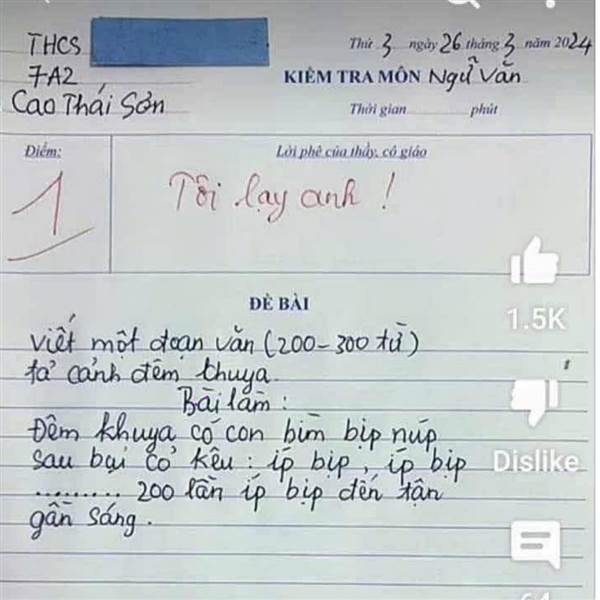 THCS
7A2
Cao Thái Sơn
Thứ 3 ngày 26 tháng 3 năm 2024
KIỂM TRA MÔN Ngữ Văn
Thời gian..............phút
Điểm:
Lời phê của thầy, cô giáo
1
Tôi lạy anh !
ĐỀ BÀI
viết một đoạn văn (200-300 từ)
tả cảnh đêm khuya
Bài làm :
Đêm khuya có con bìm bịp núp
sau bụi cỏ kêu : íp bịp , íp bịp
......... 200 lần íp bịp đến tận
gần sáng .
1.5K
Dislike